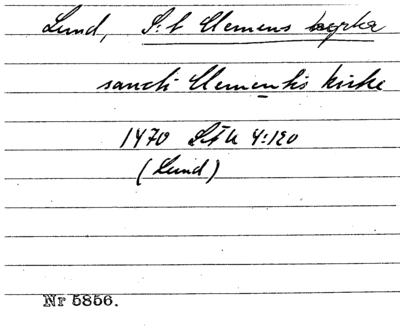 Lund, S:t Clemens kyrka
sancti Clementis kirke
1470 LÄU 4:120
(Lund)
Nr 5856.